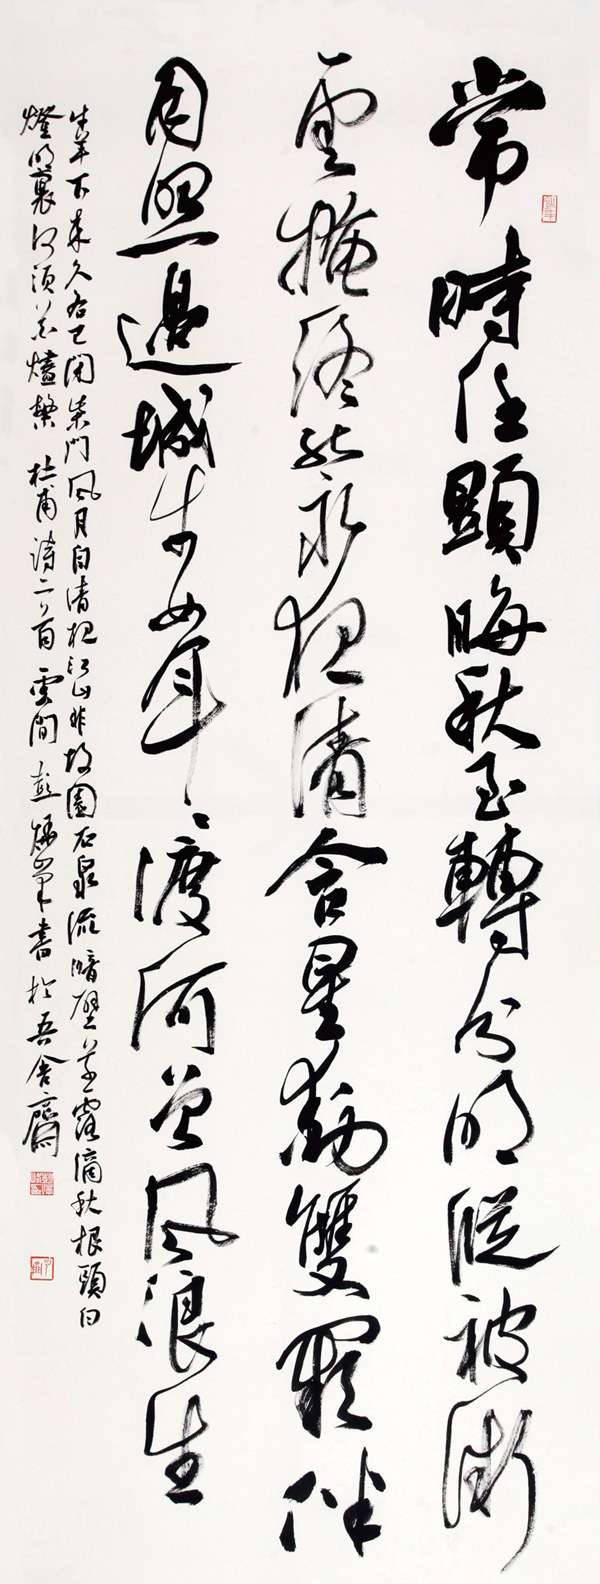 常時任顯晦秋至轉分明縱被微
雲掩終能永夜清含星動雙闕伴
月照邊城牛女年々渡河曾風浪生
牛羊下來久各已閉柴門風月自清夜江山非故園石泉流暗壁草露滴秋根頭白
燈明裏何須花燼繁 杜甫詩二首 雲間彭燁峯書於吾舍齋